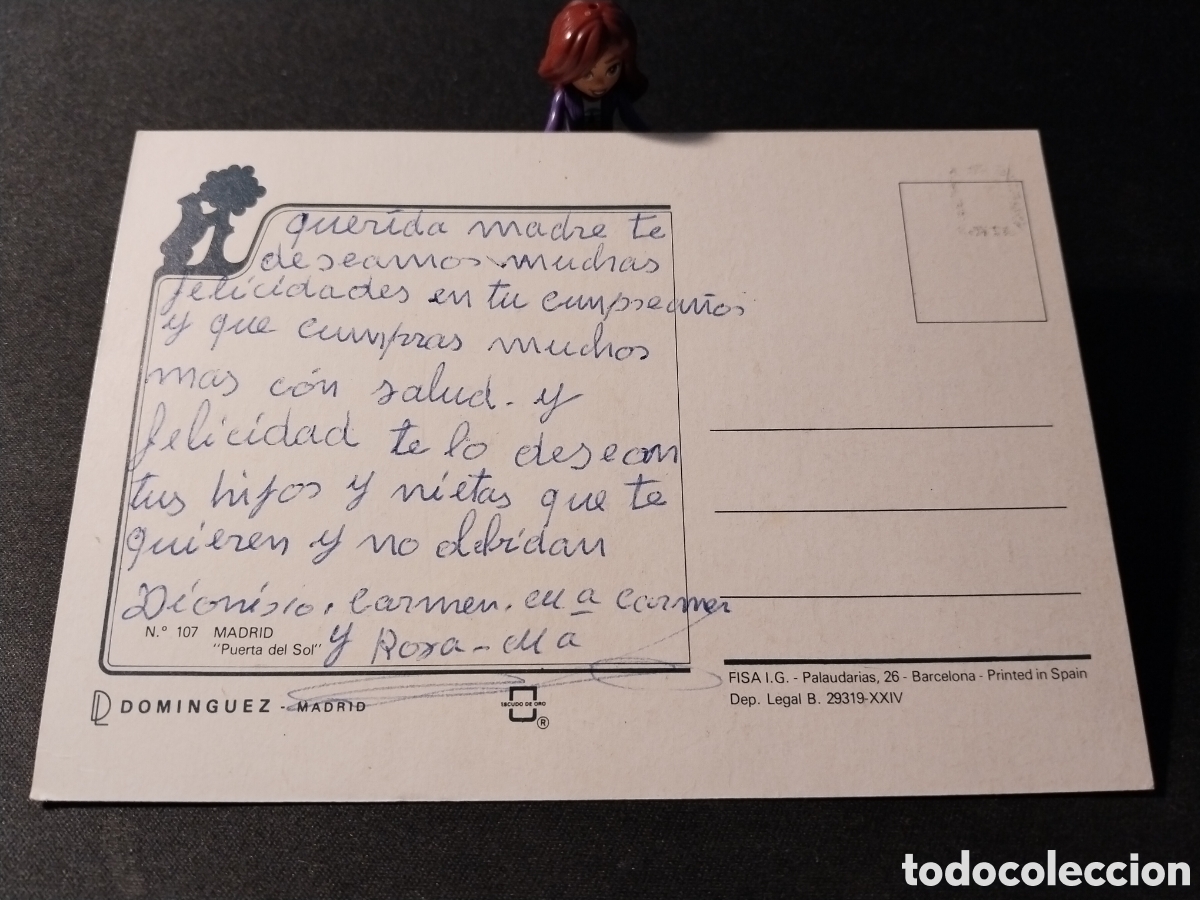 querida madre te
deseamos muchas
felicidades en tu cunpseaños
y que cumpras muchos
mas cón salud. y
felicidad te lo desean
tus hijos y nietas que te
quieren y no olbidan
Dionisio, Carmen, Mª Carmen
y Rosa-Mª
N.º 107 MADRID
"Puerta del Sol"
DOMINGUEZ - MADRID
ESCUDO DE ORO
®
FISA I.G. - Palaudarias, 26 - Barcelona - Printed in Spain
Dep. Legal B. 29319-XXIV
todocoleccion